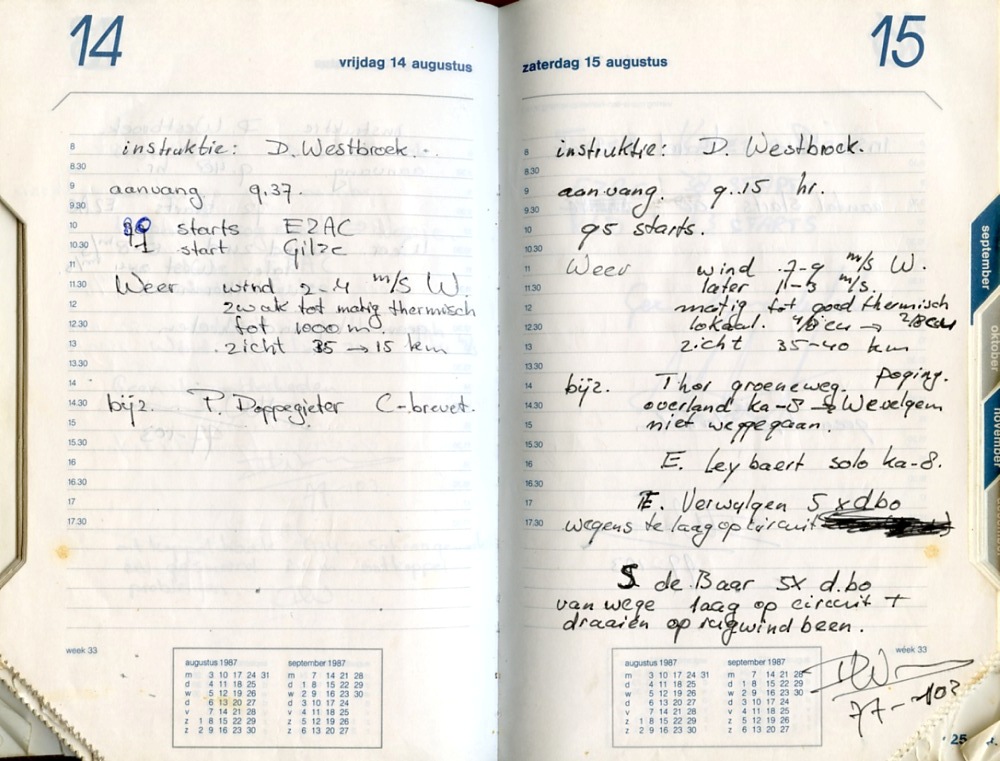 14
vrijdag 14 augustus
8 instruktie: D. Westbroek.
8.30
9 aanvang 9.37.
9.30
10 starts EZAC
10.30 1 start Gilze
11
11.30 Weer wind 2-4 m/s W.
12 zwak tot matig thermisch
12.30 tot 1000 m.
13 zicht 35 → 15 km
13.30
14
14.30 bijz. P. Doppegieter C-brevet.
15
15.30
16
16.30
17
17.30
week 33
augustus 1987
m 3 10 17 24 31
d 4 11 18 25
w 5 12 19 26
d 6 13 20 27
v 7 14 21 28
z 1 8 15 22 29
z 2 9 16 23 30
september 1987
m 7 14 21 28
d 1 8 15 22 29
w 2 9 16 23 30
d 3 10 17 24
v 4 11 18 25
z 5 12 19 26
z 6 13 20 27
15
zaterdag 15 augustus
8 instruktie: D. Westbroek.
8.30
9 aanvang. 9.15 hr.
9.30
10 95 starts.
10.30
11 Weer wind 7-9 m/s W.
11.30 later m/s.
12 matig tot goed thermisch
12.30 lokaal.
13 zicht 35-40 km
13.30
14 bijz. Thor groeneweg. poging.
14.30 overland ka-8 → Wevelgem
15 niet weggegaan.
15.30
16 E. Leybaert solo ka-8.
16.30
17 E. Verwilgen 5 x dbo
17.30 wegens te laag op circuit
S de Baar 5x d.bo
van wege laag op circuit +
draaien op rugwind been.
week 33
augustus 1987
m 3 10 17 24 31
d 4 11 18 25
w 5 12 19 26
d 6 13 20 27
v 7 14 21 28
z 1 8 15 22 29
z 2 9 16 23 30
september 1987
m 7 14 21 28
d 1 8 15 22 29
w 2 9 16 23 30
d 3 10 17 24
v 4 11 18 25
z 5 12 19 26
z 6 13 20 27
september
oktober
november
25